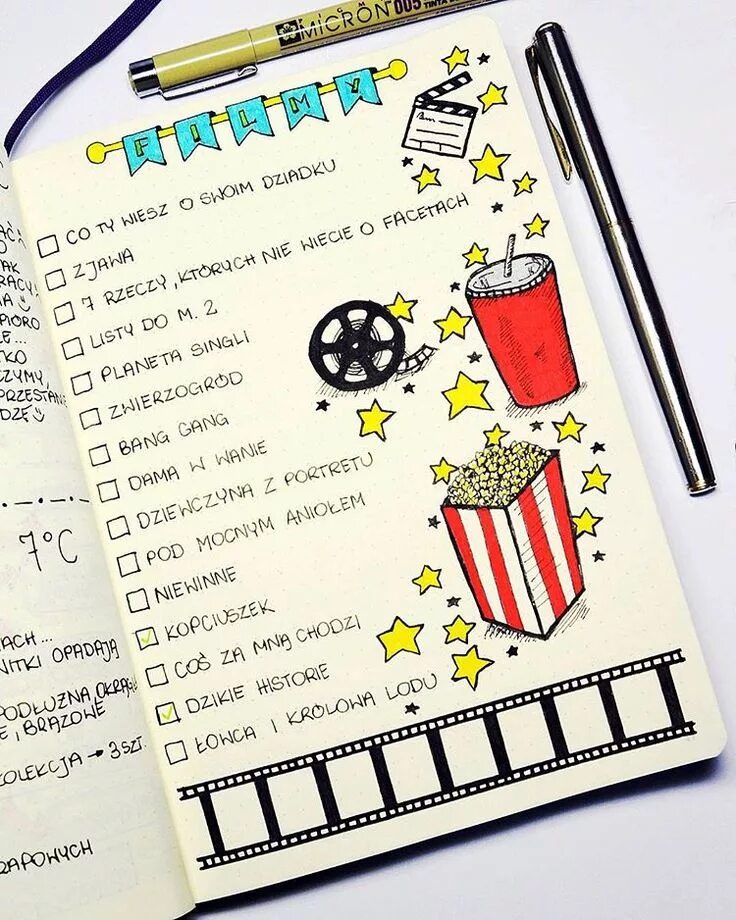 MICRON 005
FILMY
CO TY WIESZ O SWOIM DZIADKU
ZJAWA
7 RZECZY, KTÓRYCH NIE WIECIE O FACETACH
LISTY DO M. 2
PLANETA SINGLI
ZWIERZOGRÓD
BANG GANG
DAMA W WANIE
DZIEWCZYNA Z PORTRETU
POD MOCNYM ANIOŁEM
NIEWINNE
KOPCIUSZEK
COŚ ZA MNĄ CHODZI
DZIKIE HISTORIE
ŁOWCA I KRÓLOWA LODU
7°C
ACH...
NITKI OPADAJĄ
PODŁUŻNA, OKRĄG
E, BRĄZOWE
OLEKCJA → 3 SZT.
RAPOWYCH